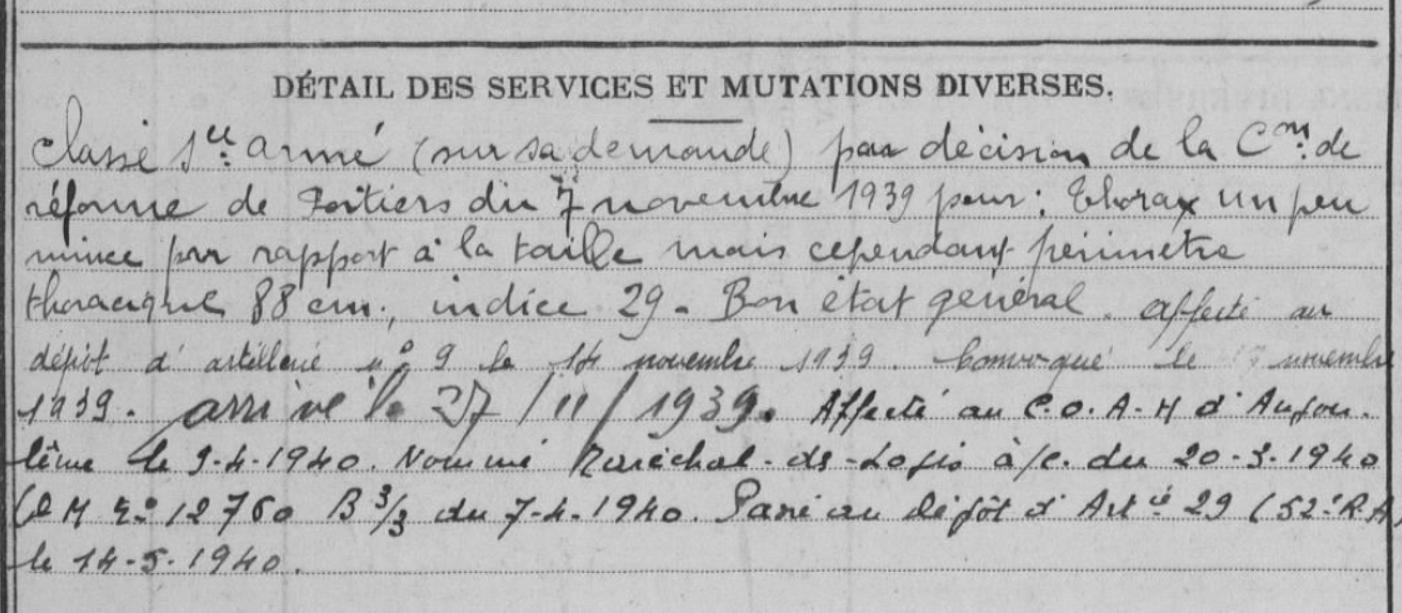 DÉTAIL DES SERVICES ET MUTATIONS DIVERSES.
Classé sce armé (sur sa demande) par décision de la Con de
réforme de Poitiers du 7 novembre 1939 pour: Thorax un peu
mince par rapport à la taille mais cependant périmètre
thoracique 88 cm., indice 29. Bon état général. affecté au
dépôt d'artillerie no 9 le 14 novembre 1939. Convoqué le novembre
1939. arrivé le 27/11/1939. Affecté au C.O.A.M d'Angou-
lême le 9-4-1940. Nommé Maréchal-ds-Logis à/c. du 20-3-1940
(D M No 12760 B 3/3 du 7-4-1940. Passé au dépôt d'Artie 29 (52e R.A)
le 14-5-1940.